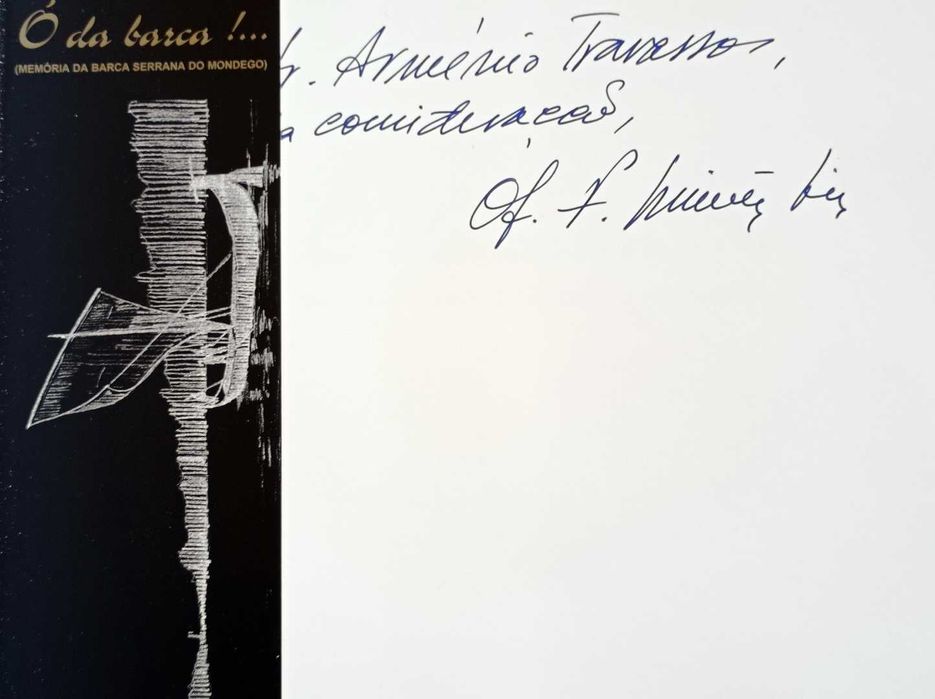 Ó da barca !...
(MEMÓRIA DA BARCA SERRANA DO MONDEGO)
r. Arménio Travassos,
a consideração,
Of. F.